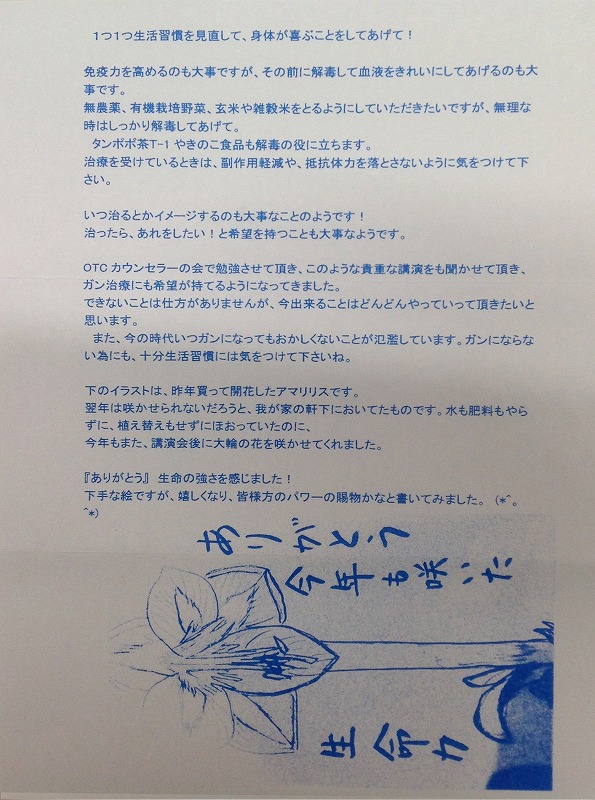 1つ1つ生活習慣を見直して、身体が喜ぶことをしてあげて！
免疫力を高めるのも大事ですが、その前に解毒して血液をきれいにしてあげるのも大
事です。
無農薬、有機栽培野菜、玄米や雑穀米をとるようにしていただきたいですが、無理な
時はしっかり解毒してあげて。
タンポポ茶T-1 やきのこ食品も解毒の役に立ちます。
治療を受けているときは、副作用軽減や、抵抗体力を落とさないように気をつけて下
さい。
いつ治るとかイメージするのも大事なことのようです！
治ったら、あれをしたい！と希望を持つことも大事なようです。
OTCカウンセラーの会で勉強させて頂き、このような貴重な講演をも聞かせて頂き、
ガン治療にも希望が持てるようになってきました。
できないことは仕方がありませんが、今出来ることはどんどんやっていって頂きたいと
思います。
また、今の時代いつガンになってもおかしくないことが氾濫しています。ガンにならな
い為にも、十分生活習慣には気をつけて下さいね。
下のイラストは、昨年買って開花したアマリリスです。
翌年は咲かせられないだろうと、我が家の軒下においてたものです。水も肥料もやら
ずに、植え替えもせずにほおっていたのに、
今年もまた、講演会後に大輪の花を咲かせてくれました。
『ありがとう』 生命の強さを感じました！
下手な絵ですが、嬉しくなり、皆様方のパワーの賜物かなと書いてみました。 (*^。
^*)
ありがとう
今年も咲いた
生命力